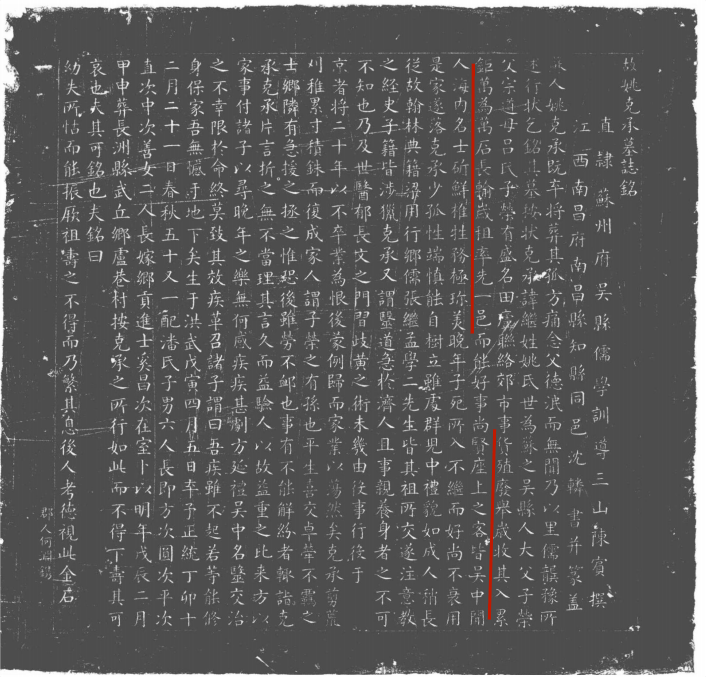 故姚克承墓誌銘
直隸蘇州府吳縣儒學訓導三山陳賓撰
江西南昌府南昌縣知縣同邑沈轔書并篆盖
人姚克承既卒將葬其孤方痛念父德泯而無聞乃以里儒韻豫所
述行状乞銘其墓按狀克承諱繼姓姚氏世為蘇之吳縣人大父子榮
父宗道母呂氏子榮有盛名田廬聯絡郊市事貨殖廢舉歲收其入累
鉅萬為萬石長輸歲租率先一邑而能好事尚賢座上之客皆吳中聞
人海内名士斫鮮椎牲務極珎羙晚年子死所入不繼而好尚不衰用
是家遂落克承少孤性端慎能自樹立雖處群児中禮貌如成人稍長
從故翰林典籍梁用行鄉儒張繼孟學二先生皆其祖所交遂注意教
之經史子籍皆涉獵克承又謂毉道急扵濟人且事親養身者之不可
不知也乃及世毉郁長文之門習歧黄之術未幾由徃事行後于
京者将二十年以不卒業為恨後蒙例歸而家業以蕩然矣克承剪荒
刈穢累寸積銖而復成家人謂子榮之有孫也平生喜交卓犖不羈之
士鄉隣有急援之拯之惟恐後雖勞不邺也事有不能解紛者輒詣克
承克承片言折之無不當理其言久而益驗人以故益重之比来方以
家事付諸子以尋晚年之樂無何感疾疾甚劇方延禮吳中名毉交治
之不幸限扵命終莫致其效疾革召諸子謂曰吾疾雖不起若䓁能脩
身保家吾無憾于地下矣生于洪武戊寅四月五日卒于正統丁卯十
二月二十一日春秋五十又一配潘氏子男六人長即方次圓次平次
直次中次善女二人長嫁鄉貢進士奚昌次在室卜以明年戊辰二月
甲申葬長洲縣武丘鄉盧巷村按克承之所行如此而不得丁壽其可
哀也夫其可銘也夫銘曰
幼失所怙而能振厥祖壽之不得而乃繁其息後人考德視此金石
郡人何